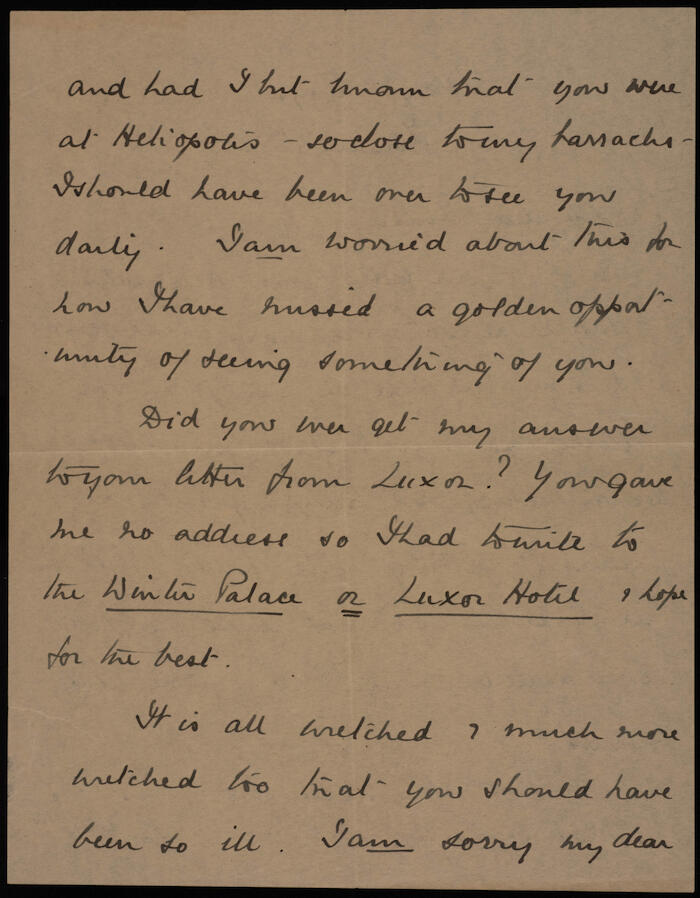 and had I but known that you were
at Heliopolis - so close to my barracks -
I should have been over to see you
daily. I am worried about this for
now I have missed a golden opport-
unity of seeing something of you.
Did you ever get my answer
to your letter from Luxor? You gave
me no address so I had to write to
the Winter Palace or Luxor Hotel & hope
for the best.
It is all wretched & much more
wretched too that you should have
been so ill. I am sorry my dear